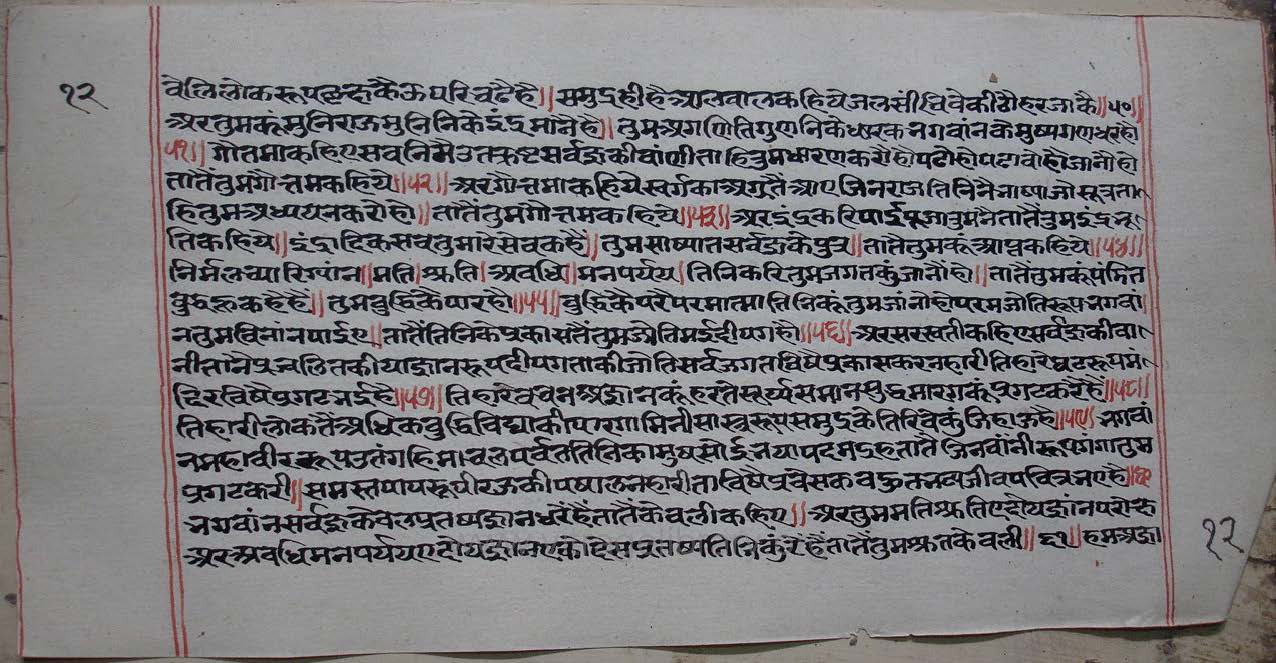 १२
वेलि लोकरूप के ऊपरि चढै है॥ समुद्र ही है आलवाल कहिये जल सींचिवे की ठौहर जाकै॥५०॥
अर तुमकूं मुनिराज मुनिनिके इंद्र मानै है॥ तुम अगणिति गुणनिके धारक भगवांनके मुष्य गणधर हो
५१॥ गौतमा कहिए सबनिमै उतकृष्ट सर्वज्ञकी वांणी ताहि तुम धारण करौ हौ पढौ हो पढावो हौ जानौ हौ
तातैं तुम गौत्तम कहिये॥५२॥ अर गौत्तमा कहिये स्वर्ग का अग्र तैं आए जिनराज तिनिनै भाष्या जो सूत्र ता
हि तुम अध्ययन करो हो॥ तातैं तुम गौत्तम कहिये॥५३॥ अर इंद्र करि पाई पूजा तुमने तातैं तुम इंद्रभू
ति कहिये॥ इंद्रादिक सब तुमारे सेवक हैं॥ तुम साष्यात सर्वज्ञ के पुत्र॥ तातै तुमकूं आप्त कहिये॥५४॥
निर्मल च्यारि ग्यांन॥ मति। श्रुति। अवधि॥ मनपर्यय। तिनि करि तुम जगतकुं जानौं हो॥ तातैं तुमकूं पंडित
बुद्ध कहै हे॥ तुम बुद्धिकै पार हौ॥५५॥ बुद्धिकै परै परमात्मा तिनिकूं तुम जांनो हो परम जोतिरूप भगवा
न तुम विना न पाईए॥ तातैं तिनिके प्रकासतैं तुम ज्योतिमई दीपग हौ॥५६॥ अर सरस्वती कहिए सर्वज्ञकी वा
नी तानै प्रज्वलित कीया ज्ञानरूप दीपग ताकी जोति सर्व जगतविषै प्रकास करनहारी तिहारे घटरूप मं
दिरविषै प्रगट भई है॥५७॥ तिहारे वचन अज्ञानकूं हरतें सूर्य समान शुद्ध मारगकूं प्रगट करै है॥५८॥
तिहारी लोकतैं अधिक बुद्धि विद्या की पारगामिनी सास्त्ररूप समुद्र के तिरिवेकुं जिहाज है॥५९॥ भगवां
न महावीररूप उतंग हिमाचल पर्वत तिनिका मुष सोई भया पदमद्रह तातै जिनवांनीरूप गंगा तुम
प्रगट करी॥ समस्त पापरूपी रजकी पषालनहारी ता विषै प्रवेस कर बहुत भव्य जीव पवित्र भए है॥६०
भगवांन सर्वज्ञ केवल प्रतष्य ज्ञान धरैं हैं तातैं केवली कहिए॥ अर तुम मति श्रुति ए दोय ज्ञांन परोक्ष
अर अवधि मनपर्यय ए दोय ज्ञान एकोदेस प्रतष्य तिनिकुं धरैं हैं तातैं तुम श्रुतकेवली॥६१॥ हम अज्ञा
१२